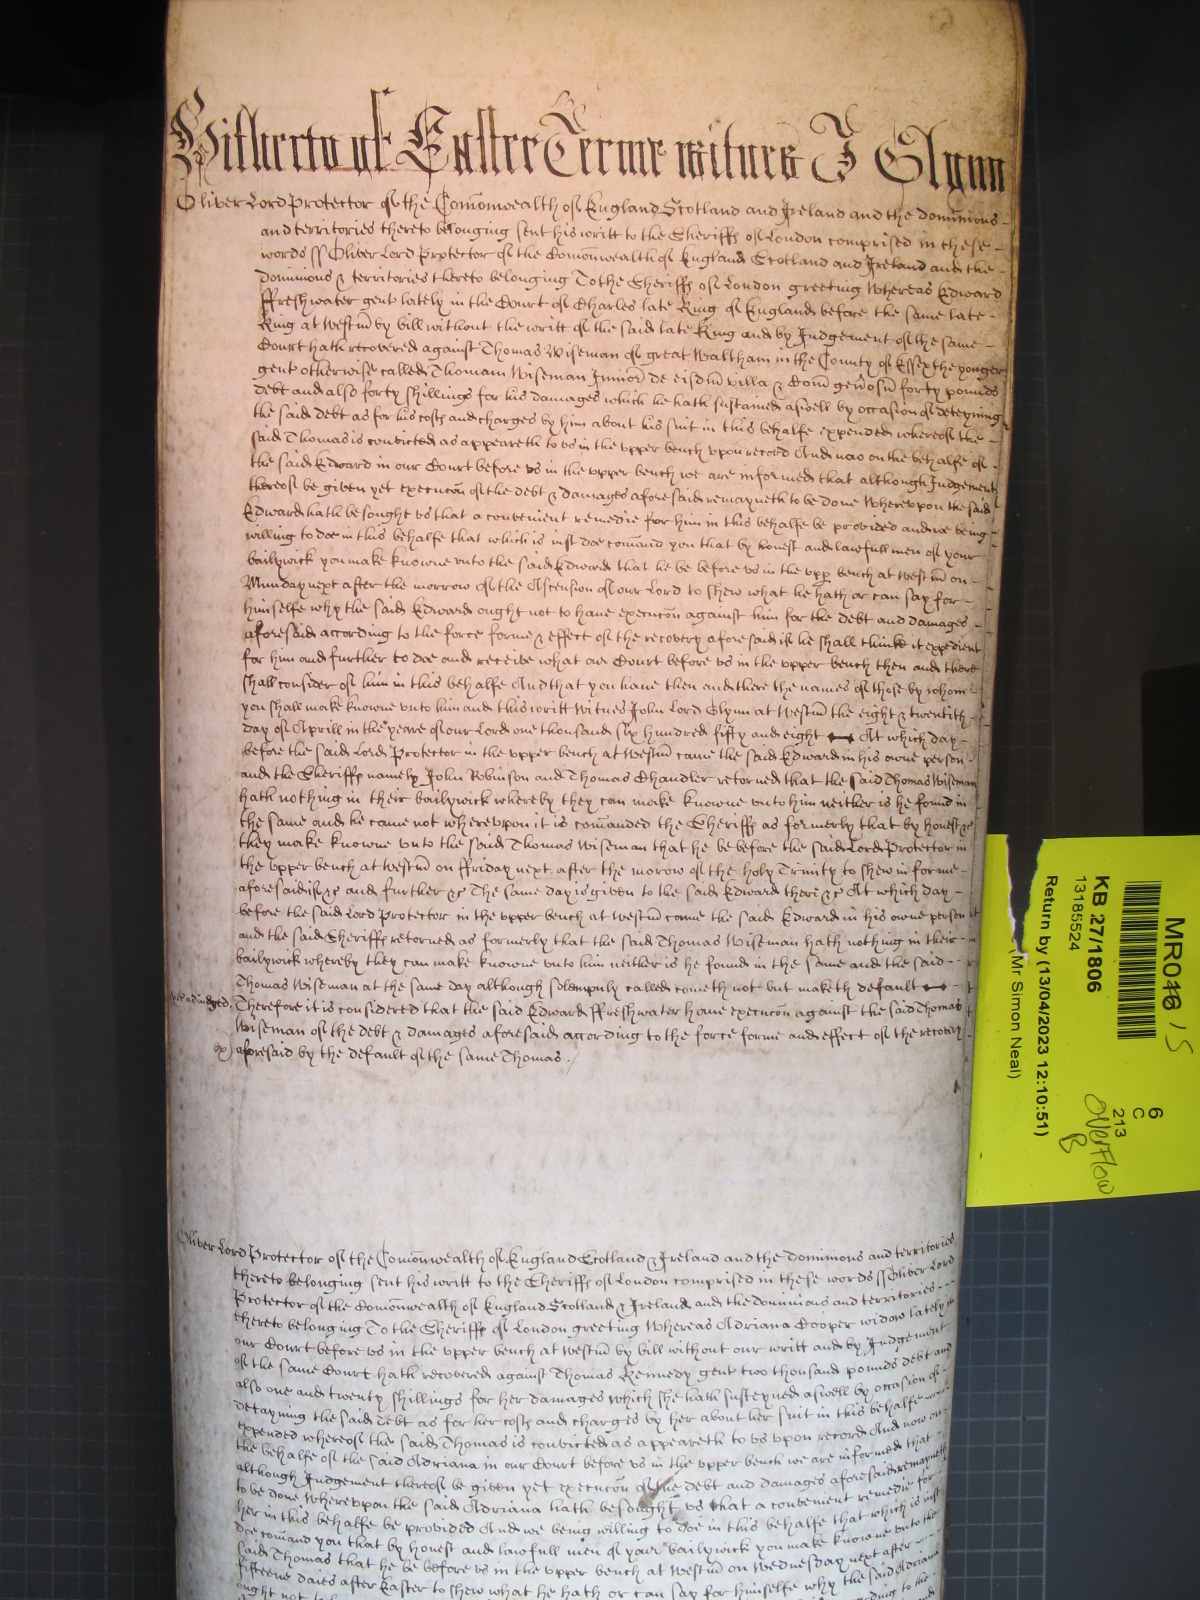 Hitherto of Easter Terme witnes J Glynn
Oliver Lord Protector of the Com̄onwealth of England Scotland and Ireland and the dominions
and territories thereto belonging sent his writt to the Sheriffs of London comprised in these
words ss Oliver Lord Protector of the Com̄onwealth of England Scotland and Ireland and the
dominions & territories thereto belonging To the Sheriffs of London greeting Whereas Edward
ffreshwater gent lately in the Court of Charles late King of England before the same late
King at Westm̄ by bill without the writt of the said late King and by Judgement of the same
Court hath recovered against Thomas Wiseman of great Waltham in the County of Essex the yonger
gent otherwise called Thomam Wiseman Juniorē de eisdm̄ villa & Com̄ genōsum forty pounds
debt and also forty shillings for his damages which he hath sustained aswell by occasion of deteyning
the said debt as for his costs and charges by him about his suit in this behalfe expended whereof the
said Thomas is convicted as appeareth to vs in the vpper bench vpon record And now on the behalfe of
the said Edward in our Court before vs in the vpper bench we are informed that although Judgement
thereof be given yet execucōn of the debt & damages aforesaid remayneth to be done Wherevpon the said
Edward hath besought vs that a convenient remedie for him in this behalfe be provided and we being
willing to doe in this behalfe that which is iust doe com̄and you that by honest and lawfull men of your
bailywick you make knowne vnto the said Edward that he be before vs in the vpp bench at Westm̄ on
Munday next after the morrow of the Ascension of our Lord to shew what he hath or can say for
himselfe why the said Edward ought not to have execucōn against him for the debt and damages
aforesaid according to the force forme & effect of the recovery aforesaid if he shall think it expedient
for him and further to doe and receive what our Court before vs in the vpper bench then and there
shall consider of him in this behalfe And that you have then and there the names of those by whom
you shall make knowne vnto him and this writt Witnes John Lord Glynn at Westm̄ the eight & twentith
day of Aprill in the yeare of our Lord one thousand six hundred fifty and eight At which day
before the said Lord Protector in the vpper bench at Westm̄ came the said Edward in his owne person
and the Sheriffs namely John Robinson and Thomas Chandler retorned that the said Thomas Wiseman
hath nothing in their bailywick whereby they can make knowne vnto him neither is he found in
the same and he came not wherevpon it is com̄anded the Sheriffs as formerly that by honest &c
they make knowne vnto the said Thomas Wiseman that he be before the said Lord Protector in
the vpper bench at Westm̄ on ffriday next after the morow of the holy Trinity to shew in forme
aforesaid if &c and further &c The same day is given to the said Edward there &c At which day
before the said Lord Protector in the vpper bench at Westm̄ came the said Edward in his owne person
and the said Sheriffs retorned as formerly that the said Thomas Wiseman hath nothing in their
bailywick whereby they can make knowne vnto him neither is he found in the same and the said
Thomas Wiseman at the same day although solempnly called cometh not but maketh default
Therefore it is considered that the said Edward ffreshwater have execucōn against the said Thomas
Wiseman of the debt & damages aforesaid according to the force forme and effect of the recovery
aforesaid by the default of the same Thomas
Oliver Lord Protector of the Com̄onwealth of England Scotland & Ireland and the dominions and territories
thereto belonging sent his writt to the Sheriffs of London comprised in these words ss Oliver Lord
Protector of the Com̄onwealth of England Scotland & Ireland and the dominions and territories
thereto belonging To the Sheriffs of London greeting Whereas Adriana Cooper widow lately in
our Court before vs in the vpper bench at Westm̄ by bill without our writt and by Judgement
of the same Court hath recovered against Thomas Kennedy gent two thousand pounds debt and
also one and twenty shillings for her damages which she hath susteyned aswell by occasion of
detayning the said debt as for her costs and charges by her about her suit in this behalfe
expended whereof the said Thomas is convicted as appeareth to vs vpon record And now on
the behalfe of the said Adriana in our Court before vs in the vpper bench we are informed that
although Judgement thereof be given yet execucōn of the debt and damages aforesaid remayneth
to be done Wherevpon the said Adriana hath besought vs that a convenient remedie for
her in this behalfe be provided And we being willing to doe in this behalfe that which is iust
doe com̄and you that by honest and lawfull men of your bailywick you make knowne vnto the
said Thomas that he be before vs in the vpper bench at Westm̄ on Wednesday next after
fifteene daies after Easter to shew what he hath or can say for himselfe why the said Adriana
ought not to
MR046 / 5
KB 27/1806
13185524
Return by (13/04/2023 12:10:51)
(Mr Simon Neal)
6
C
213
Overflow
B